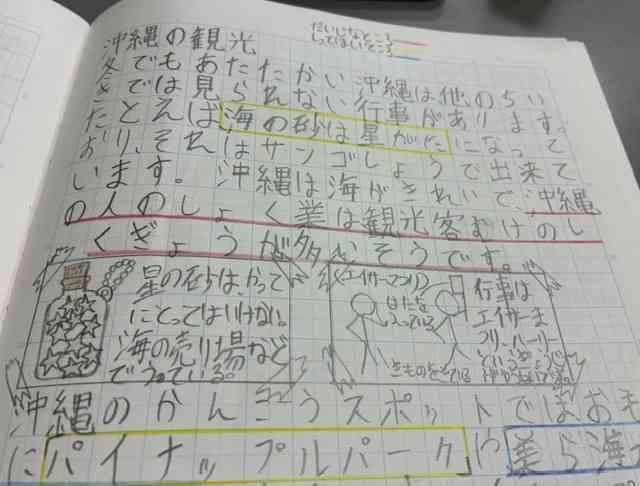 だいじなところ
しってほしいところ
沖縄の観光
冬でもあたたかい沖縄は他のちい
きでは見られない行事があります。
たとえば海の砂は星がたになって
おり、それはサンゴしょうで出来て
います。沖縄は海がきれいで沖縄
の人のしょく業は観光客むけのし
くぎょうが多いそうです。
星の砂は、かって
にとってはいけない。
海の売り場など
でうっている。
エイサーまつり
はたを
もっている
きものをきている
行事は
エイサーま
つり
ハーリー
という
沖縄のかんこうスポットでは、おも
に パイナップルパーク や 美ら海